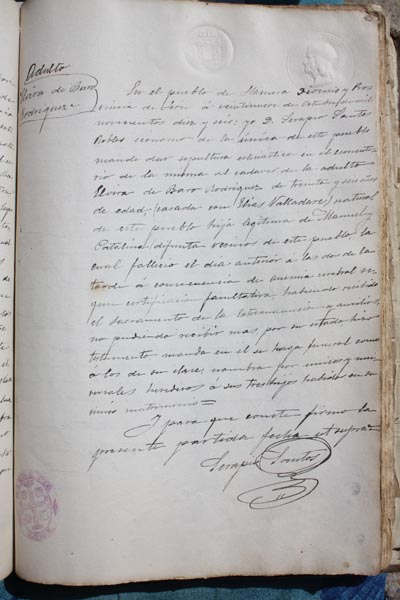 Adulto
Elvira de Baro
Rodriguez
En el pueblo de Mansera Diocesis y Pro
vincia de Leon á veintinueve de Octubre de mil
novecientos diez y seis: yo D. Serapio Santos
Robles ecónomo de la única de este pueblo
mandé dar sepultura eclesiástica en el cemente
rio de la misma al cadaver de la adulta
Elvira de Baro Rodriguez de treinta y seis años
de edad, (casada con Elias Valladares) natural
de este pueblo hija legitima de Manuel y
Catalina (difunta) vecinos de este pueblo, la
cual falleció el dia anterior a las dos de la
tarde á consecuencia de anemia cerebral se
gun certificacion facultativa, habiendo recibido
el sacramento de la extremauncion y auxilios,
no pudiendo recibir mas por su estado, hizo
testamento manda en él se haga funeral como
á los de su clase, nombra por unicos y uni
versales herederos á sus tres hijos habidos en su
único matrimonio=
Y para que conste firmo la
presente partida fecha ut supra=
Serapio Santos